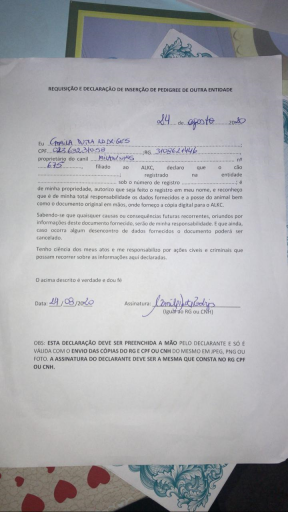 REQUISIÇÃO E DECLARAÇÃO DE INSERÇÃO DE PEDIGREE DE OUTRA ENTIDADE
14 de agosto /2020
Eu
CPF RG
proprietário do canil nº
675 filiado ao ALKC, declaro que o cão
registrado na entidade
sob o número de registro é
de minha propriedade, autorizo que seja feito o registro em meu nome, e reconheço
que é de minha total responsabilidade os dados fornecidos e a posse do animal bem
como o documento original em mãos, onde forneço a cópia digital para o ALKC.
Sabendo-se que quaisquer causas ou consequências futuras recorrentes, oriundos por
informações deste documento fornecido, serão de minha responsabilidade e que ainda,
caso ocorra algum desencontro de dados fornecidos o documento poderá ser
cancelado.
Tenho ciência dos meus atos e me responsabilizo por ações cíveis e criminais que
possam recorrer as informações aqui declaradas.
O acima descrito é verdade e dou fé
Data: 14/08/2020 Assinatura:
(Igual ao RG ou CNH)
OBS: ESTA DECLARAÇÃO DEVE SER PREENCHIDA A MÃO PELO DECLARANTE E SÓ É
VÁLIDA COM O ENVIO DAS CÓPIAS DO RG E CPF OU CNH DO MESMO EM JPEG, PNG OU
FOTO. A ASSINATURA DO DECLARANTE DEVE SER A MESMA QUE CONSTA NO RG CPF
OU CNH.